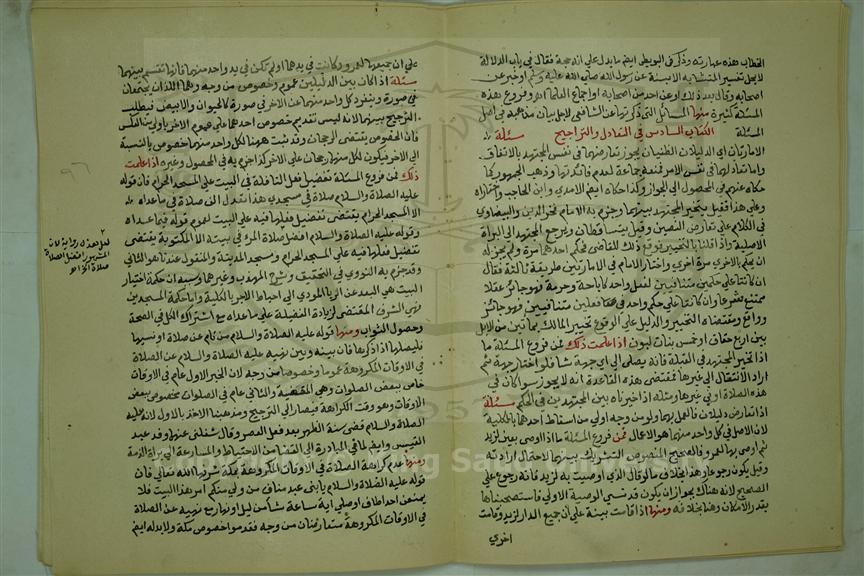 الخطاب هذه عبارته وذكر في البويطي ايضا ما يدل على انه حجة فقال في باب الدلالة
لا يحل تفسير المتشابه الا بسنة عن رسول الله صلى الله عليه وسلم او خبر عن
اصحابه وقال بعد ذلك او عن احد من اصحابه او اجماع العلماء اه وفروع هذه
المسئلة كثيرة منها المسائل التي ذكرتها عن الشافعي لاجل بيان مذهبه في اصل
المسئلة الكتاب السادس في التعادل والتراجيح مسئلة
الامارتان اي الدليلان الظنيان يجوز تعارضهما في نفس المجتهد بالاتفاق
واما تعادلهما في نفس الامر فمنعه جماعة لعدم فائدتهما وذهب الجمهور كما
حكاه عنهم في المحصول الى الجواز وكذا حكاه ايضا الامدي وابن الحاجب واختاراه
وعلى هذا فقيل يتخير المجتهد بينهما وجزم به الامام فخر الدين والبيضاوي
في الكلام على تعارض النصين وقيل يتساقطان ويرجع المجتهد الى البراة
الاصلية واذا قلنا بالتخيير فوقع ذلك للقاضي فحكم باحدهما مرة ولم يجز له
ان يحكم بالاخرى مرة اخرى واختار الامام في الامارتين طريقة ثالثة فقال
ان كانتا على حكمين متنافيين لفعل واحد كاباحة وحرمة فهو جائز عقلا
ممتنع شرعا وان كانتا على حكم واحد في فعلين متنافيين فهو جائز
وواقع ومقتضاه التخيير والدليل على الوقوع تخيير المالك بمائتين من الابل
بين اربع حقاق او خمس بنات لبون اذا علمت ذلك فمن فروع المسئلة ما
اذا تحير المجتهد في القبلة فانه يصلي الى اي جهة شا فلو اختار جهة ثم
اراد الانتقال الى غيرها فمقتضى هذه القاعدة انه لا يجوز سوا كان في
هذه الصلاة او في غيرها ومثله اذا خيرناه بين المجتهدين في الحكم مسئلة
اذا تعارض دليلان فالعمل بهما ولو من وجه اولى من اسقاط احدهما بالكلية
لان الاصل في كل واحد منهما هو الاعمال فمن فروع المسئلة ما اذا اوصى بعين لزيد
ثم اوصى بها لعمرو فالصحيح المنصوص التشريك بينهما لاحتمال ارادته
وقيل يكون رجوعا وهذا بخلاف ما لو قال الذي اوصيت به لزيد فانه رجوع على
الصحيح لانه هناك يجوز ان يكون قد نسي الوصية الاولى فاستصحبناها
بقدر الامكان وهنا بخلافه ومنها اذا قامت بينة على ان جميع الدار لزيد وقامت
اخرى
على ان جميعها لعمرو وكانت في يدهما او لم تكن في يد واحد منهما فانها تقسم بينهما
مسئلة اذا كان بين الدليلين عموم وخصوص من وجه وهما اللذان يجتمعان
في صورة وينفرد كل واحد منهما عن الاخر في صورة كالحيوان والابيض فيطلب
الترجيح بينهما لانه ليس تقديم خصوص احدهما على عموم الاخر باولى من العكس
فان الخصوص يقتضي الرجحان وقد ثبت ههنا لكل واحد منهما خصوص بالنسبة
الى الاخر فيكون لكل منهما رجحان على الاخر كذا جزم به في المحصول وغيره اذا علمت
ذلك فمن فروع المسئلة تفضيل فعل النافلة في البيت على المسجد الحرام فان قوله
عليه الصلاة والسلام صلاة في مسجدي هذا تعدل الف صلاة في ما عداه
الا المسجد الحرام يقتضي تفضيل فعلها فيه على البيت لعموم قوله فيما عداه
وقوله عليه الصلاة والسلام افضل صلاة المرء في بيته الا المكتوبة يقتضي
تفضيل فعلها فيه على المسجد الحرام ومسجد المدينة والمنقول عندنا هو الثاني
وقد جزم به النووي في التحقيق وشرح المهذب وغيرهما وسببه ان حكمة اختيار
البيت هي البعد عن الريا المودي الى احباط الاجر بالكلية واما حكمة المسجدين
فهي الشرف المقتضي لزيادة الفضيلة على ما عداه مع اشتراك الكل في الصحة
وحصول الثواب ومنها قوله عليه الصلاة والسلام من نام عن صلاة او نسيها
فليصلها اذا ذكرها فان بينه وبين نهيه عليه الصلاة والسلام عن الصلاة
في الاوقات المكروهة عموما وخصوصا من وجه لان الخبر الاول عام في الاوقات
خاص ببعض الصلوات وهي المقضية والثاني عام في الصلوات مخصوص ببعض
الاوقات وهو وقت الكراهة فيصار الى الترجيح ومذهبنا الاخذ بالاول لانه عليه
الصلاة والسلام قضى سنة الظهر بعد فعل العصر وقال شغلني عنها وفد عبد
القيس وايضا لما في المبادرة الى القضا من الاحتياط والمسارعة الى براة الذمة
ومنها عدم كراهة الصلاة في الاوقات المكروهة بمكة شرفها الله تعالى فان
قوله عليه الصلاة والسلام يا بني عبد مناف من ولي منكم امر هذا البيت فلا
يمنعن احدا طاف او صلى اية ساعة شا من ليل او نهار مع نهيه عن الصلاة
في الاوقات المكروهة متعارضان من وجه فقدموا خصوص مكة ولابد له ايضا
٢
لعل هذه رواية لان
المشهور افضل الصلاة
صلاة المرء الخ
٩٦